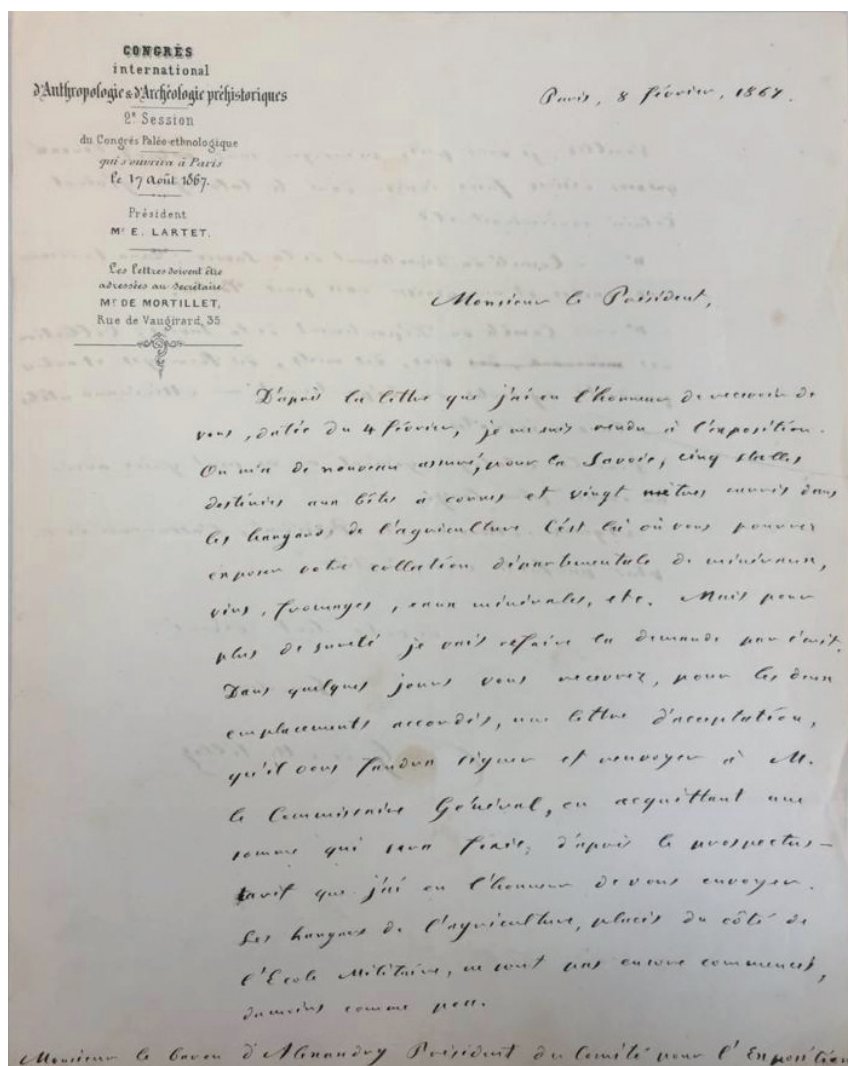 CONGRÈS
international
d'Anthropologie & d'Archéologie préhistoriques
2e Session
du Congrès Paléo-ethnologique
qui s'ouvrira à Paris
le 17 Août 1867.
Président
Mr E. LARTET.
Les Lettres doivent être
adressées au Secrétaire
Mr DE MORTILLET,
Rue de Vaugirard, 35
Paris, 8 février, 1867.
Monsieur le Président,
D'après la lettre que j'ai eu l'honneur de recevoir de
vous, datée du 4 février, je me suis rendu à l'exposition.
On m'a de nouveau assuré, pour la Savoie, cinq stalles
destinées aux bêtes à cornes et vingt mètres carrés dans
les hangars de l'agriculture. C'est là où vous pouvez
exposer votre collection départementale de minéraux,
vins, fromages, eaux minérales, etc. Mais pour
plus de sureté je vais refaire la demande par écrit.
Dans quelques jours vous recevrez, pour les deux
emplacements accordés, une lettre d'acceptation,
qu'il vous faudra signer et renvoyer à M.
le Commissaire Général, en acquittant une
somme qui sera fixée, d'après le prospectus-
tarif que j'ai eu l'honneur de vous envoyer.
Les hangars de l'agriculture, placés du côté de
l'Ecole Militaire, ne sont pas encore commencés,
du moins comme pose.
Monsieur le baron d'Alexandry Président du Comité pour l'Exposition